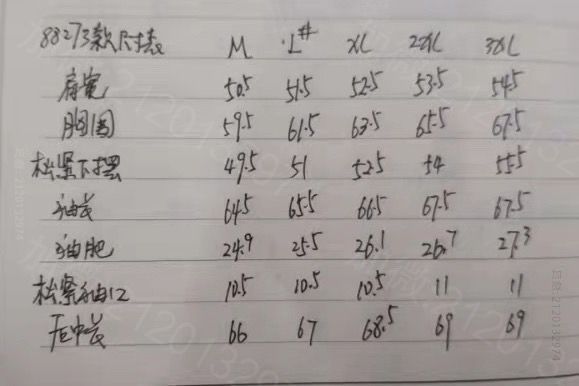 88273款尺寸表 M L# XL 2XL 3XL
肩宽 50.5 51.5 52.5 53.5 54.5
胸围 59.5 61.5 63.5 65.5 67.5
松紧下摆 49.5 51 52.5 54 55.5
袖长 64.5 65.5 66.5 67.5 67.5
袖肥 24.9 25.5 26.1 26.7 27.3
松紧袖口 10.5 10.5 10.5 11 11
后中长 66 67 68.5 69 69